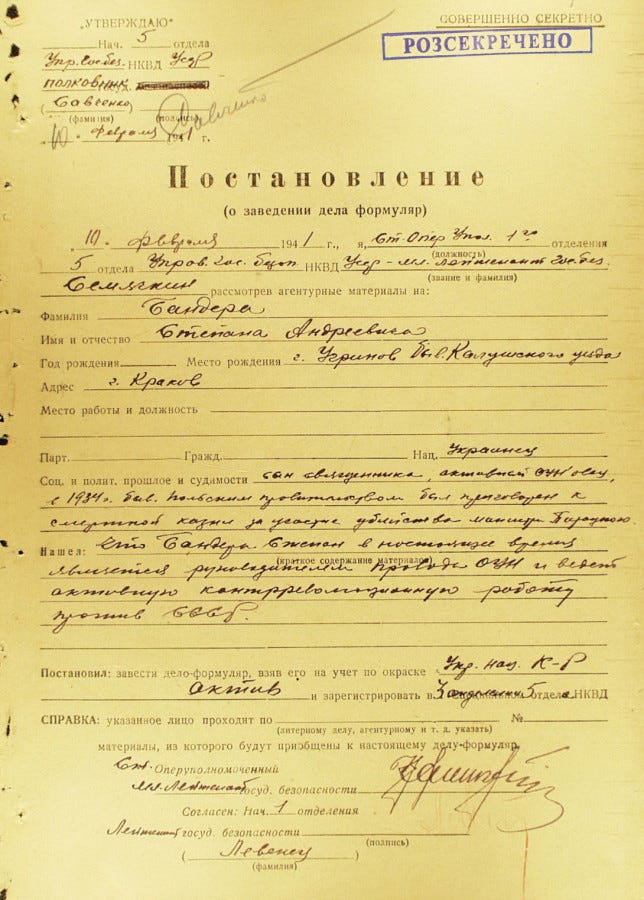 „УТВЕРЖДАЮ"
СОВЕРШЕННО СЕКРЕТНО
Нач. 5 отдела
РОЗСЕКРЕЧЕНО
Упр. Гос. без. НКВД Усср
полковник
(Савченко)
(фамилия) (подпись)
„10" февраля 1941 г.
Постановление
(о заведении дела формуляр)
„10" февраля 1941 г., я, Ст. Опер Упол. 1го отделения
(должность)
5 отдела Управ. гос. безоп. НКВД Усср - мл. лейтенант гос. без.
(звание и фамилия)
Семягкин рассмотрев агентурные материалы на:
Фамилия Бандера
Имя и отчество Степана Андреевича
Год рождения Место рождения г. Угринов быв. Калушского уезда
Адрес г. Краков
Место работы и должность
Парт. Гражд. Нац. Украинец
Соц. и полит. прошлое и судимости сын священника, активный ОУНовец,
с 1934 г. быв. Польским правительством был приговорен к
смертной казни за участие убийства министра Перацкого
Нашел: Что Бандера Степан в настоящее время
(краткое содержание материалов)
является руководителем провода ОУН и ведет
активную контрреволюционную работу
против СССР.
Постановил: завести дело-формуляр, взяв его на учет по окраске Укр. нац. К-Р
актив и зарегистрировать в 5 отдела НКВД
СПРАВКА: указанное лицо проходит по №
(литерному делу, агентурному и т. д. указать)
материалы, из которого будут приобщены к настоящему делу-формуляр.
Ст. Оперуполномоченный
мл. Лейтенант госуд. безопасности
Согласен: Нач. 1 отделения
Лейтенант госуд. безопасности
(подпись)
(Левенец)
(фамилия)